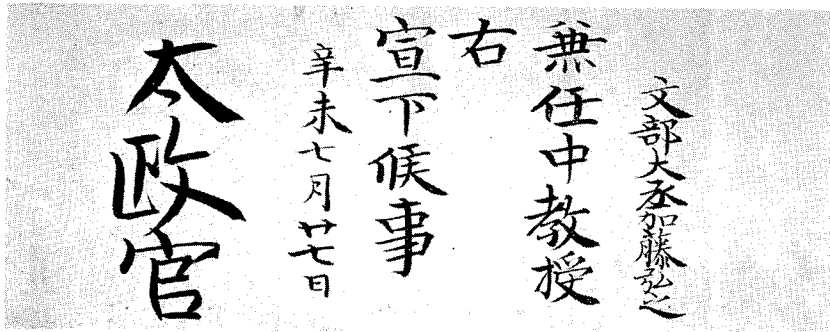 文部大丞加藤弘之
兼任中教授
右
宣下候事
辛未七月廿七日
太政官